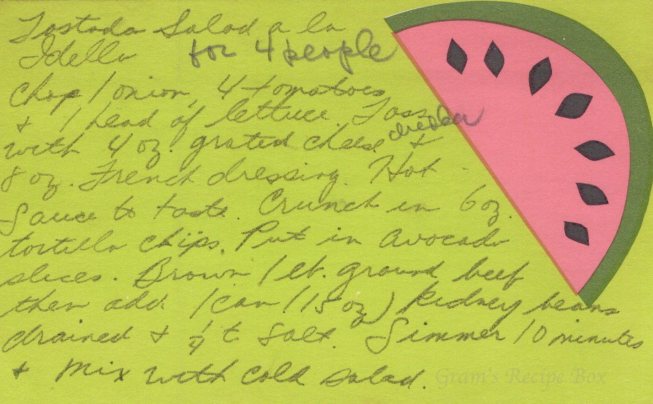 Tostada Salad a la
Idella for 4 people
Chop 1 onion, 4 tomatoes
+ 1 head of lettuce. Toss
with 4 oz grated cheese cheddar +
8 oz. French dressing. Hot
Sauce to taste. Crunch in 6 oz.
tortilla chips. Put in avocado
slices. Brown 1 lb. ground beef
then add 1 can (15 oz) kidney beans
drained + 1/4 t salt. Simmer 10 minutes
+ mix with cold salad.
Gram's Recipe Box